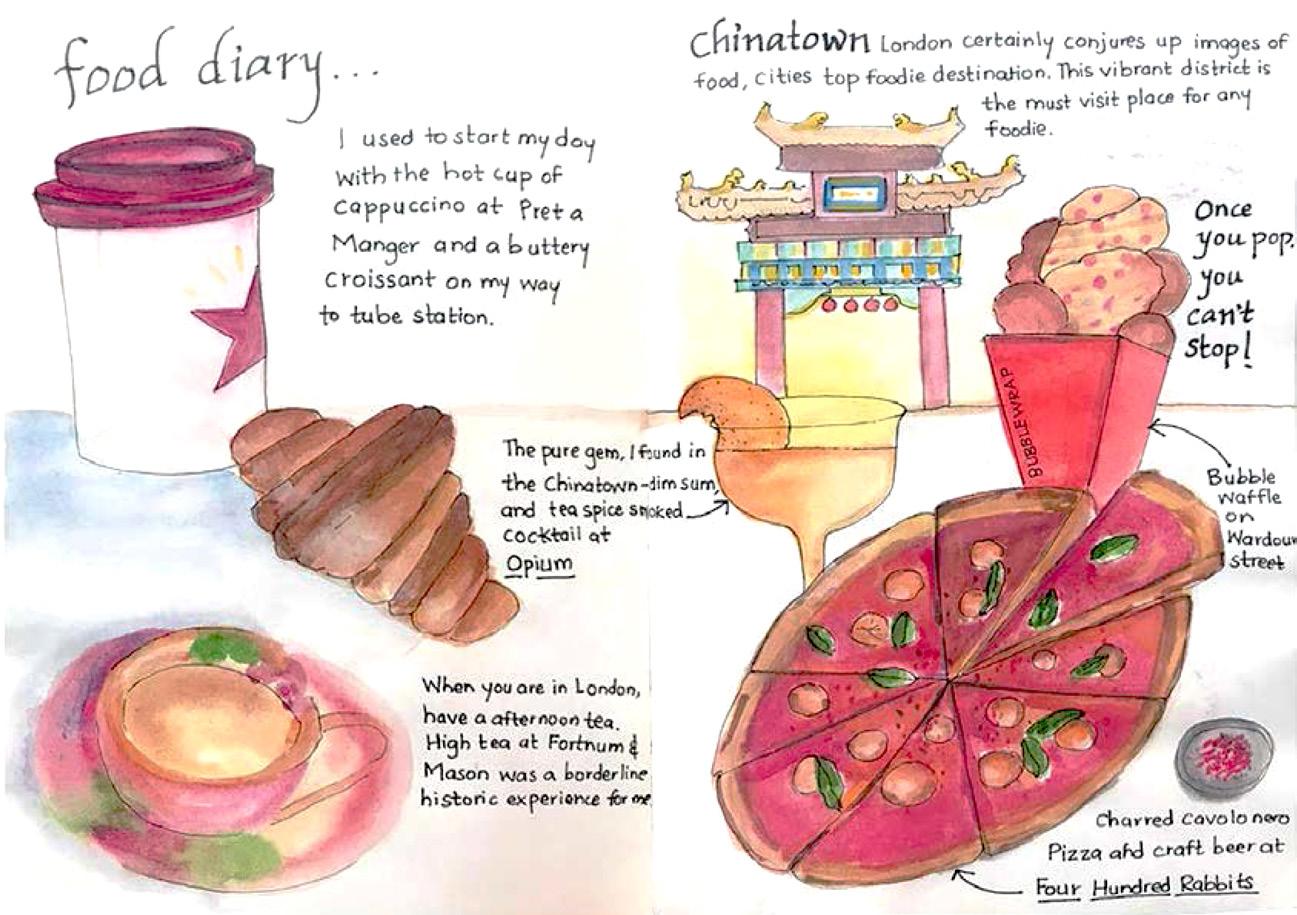 food diary...
I used to start my day
with the hot cup of
Cappuccino at Pret a
Manger and a buttery
Croissant on my way
to tube station.
The pure gem, I found in
the Chinatown-dim sum,
and tea spice smoked
cocktail at
Opium
When you are in London,
have a afternoon tea.
High tea at Fortnum &
Mason was a borderline
historic experience for me
Chinatown London certainly conjures up images of
food, cities top foodie destination. This vibrant district is
the must visit place for any
foodie.
Once
you pop.
you
can't
stop!
BUBBLEWRAP
Bubble
waffle
on
Wardour
street
Charred cavolo nero
Pizza and craft beer at
Four Hundred Rabbits